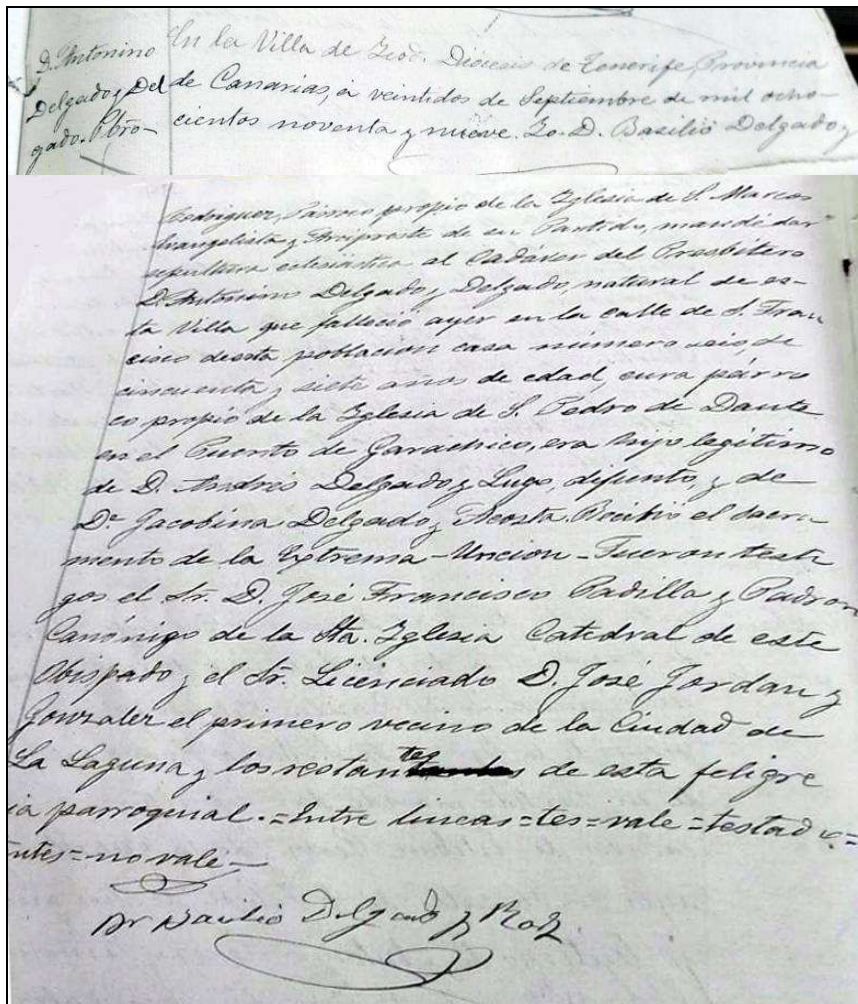 D. Antonino
Delgado y Del
gado. Pbro-
En la Villa de Icod. Diócesis de Tenerife, Provincia
de Canarias, á veintidos de Septiembre de mil ocho-
cientos noventa y nueve. Yo. D. Basilio Delgado y
Rodriguez, Párroco propio de la Iglesia de S. Marcos
Evangelista y Arcipreste de su Partido, mandé dar
sepultura eclesiástica al Cadáver del Presbítero
D. Antonino Delgado y Delgado, natural de es-
ta Villa que falleció ayer en la calle de S. Fran
cisco de esta poblacion casa número seis, de
cincuenta y siete años de edad, cura párro
co propio de la Iglesia de S. Pedro de Daute
en el Puerto de Garachico, era hijo legítimo
de D. Andrés Delgado y Lugo, difunto, y de
Dª Jacobina Delgado y Acosta. Recibió el sacra-
mento de la Extrema-Uncion-Fueron testi
gos el Sr. D. José Francisco Padilla y Padron
Canónigo de la Sta. Iglesia Catedral de este
Obispado y el Sr. Licenciado D. José Jordan y
Gonzalez el primero vecino de la Ciudad de
La Laguna y los restantes de esta feligre
ia parroquial.=Entre lineas=tes=vale=testado=
ntes=no vale-
Dr Basilio Delgado y Roz.